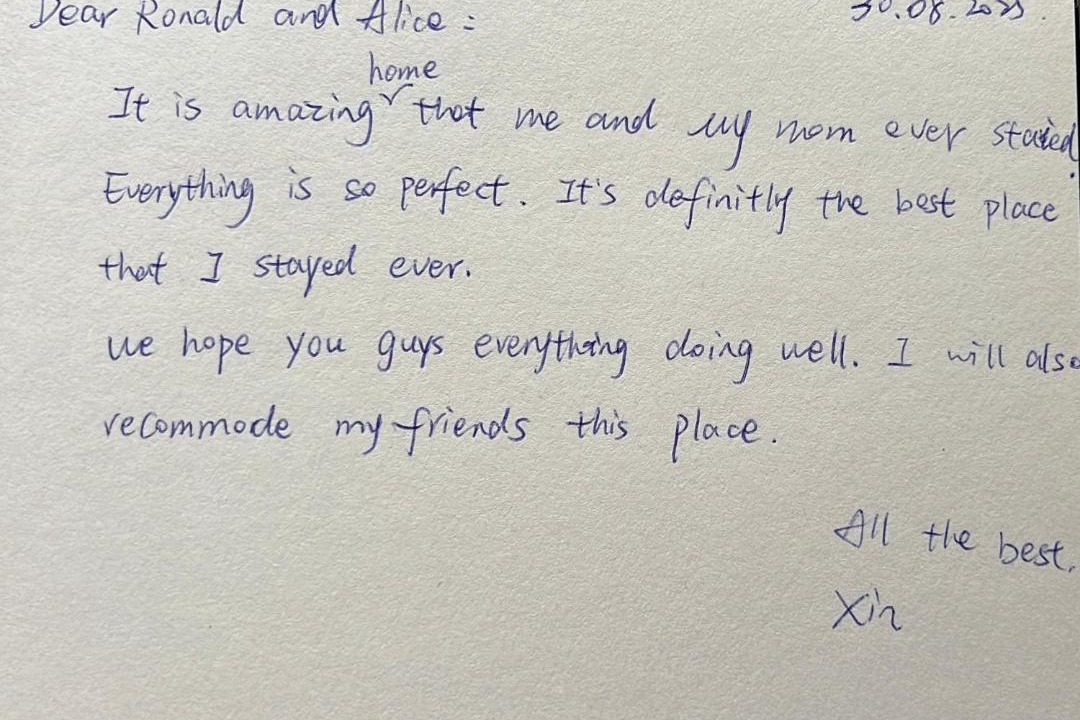 Dear Ronald and Alice: 30.08.2023.
home
It is amazing that me and my mom ever stayed.
Everything is so perfect. It's definitly the best place
that I stayed ever.
We hope you guys everything doing well. I will also
recommode my friends this place.
All the best,
Xin